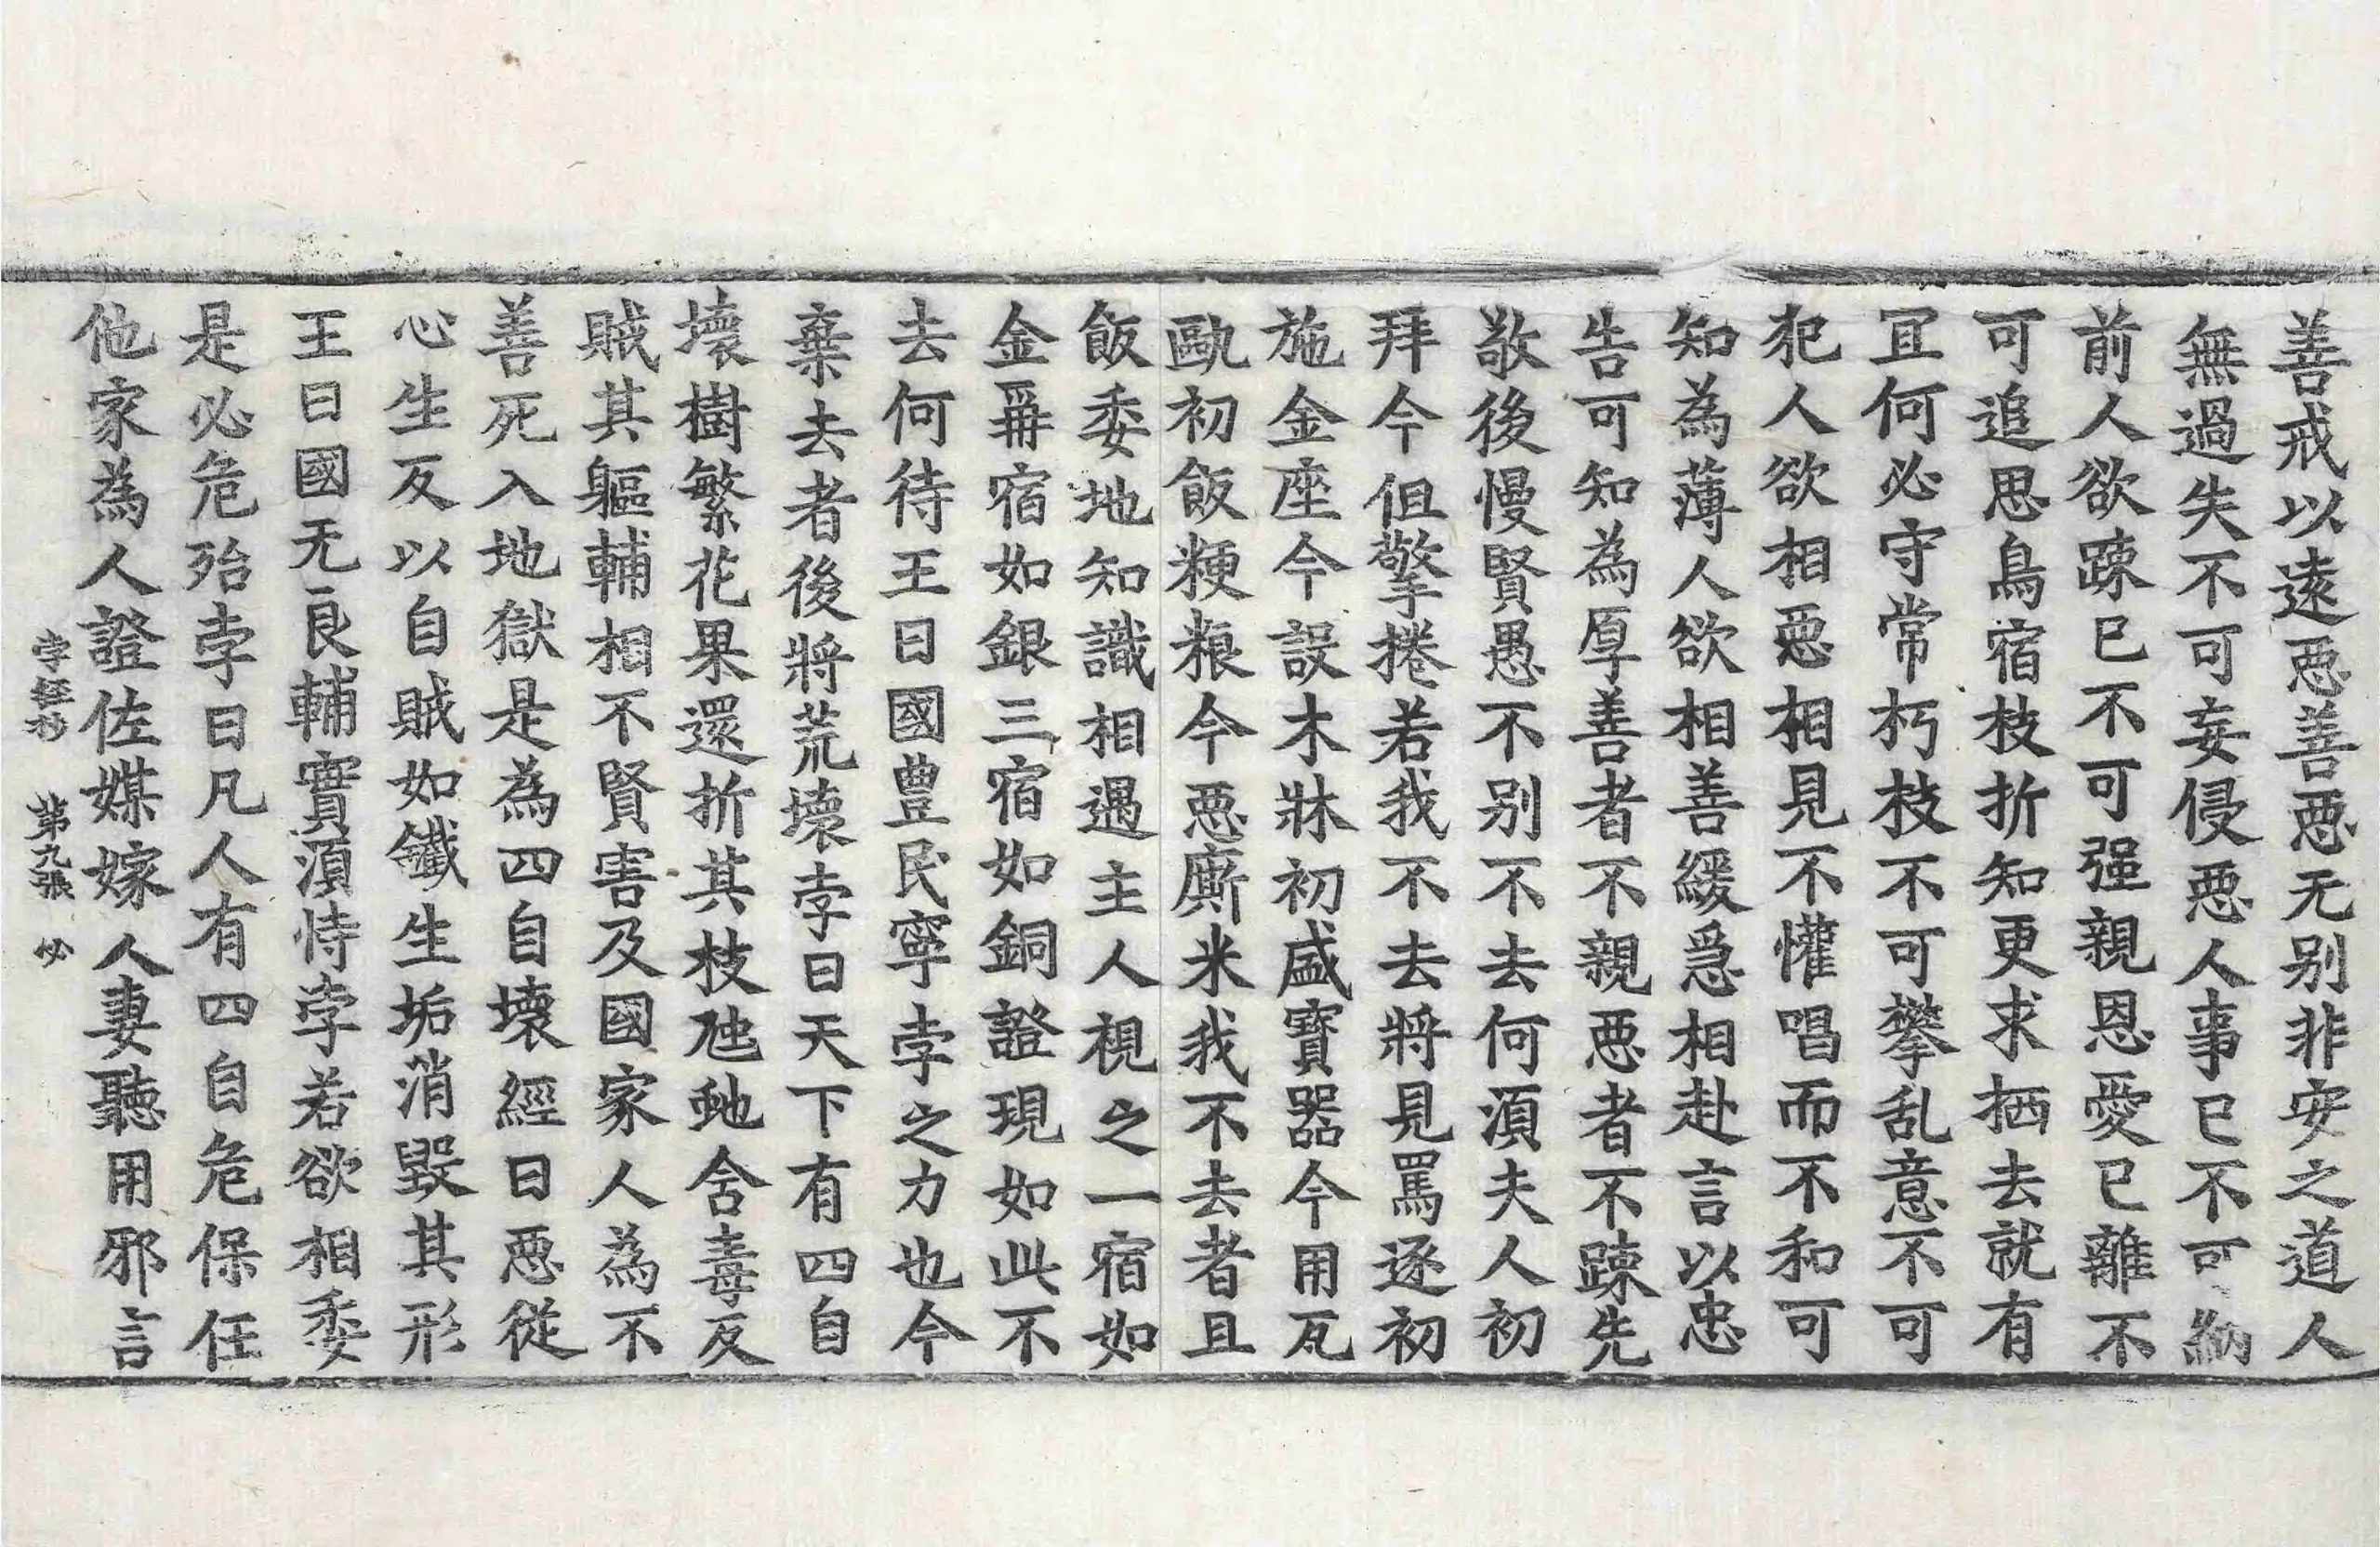 善戒以逺惡善惡无别非安之道人
無過失不可妄侵惡人事已不可納
前人欲踈已不可强親恩愛已離不
可追思鳥宿枝折知更求栖去就有
冝何必守常朽枝不可攀乱意不可
犯人欲相惡相見不懽唱而不和可
知為薄人欲相善緩急相赴言以忠
告可知為厚善者不親惡者不踈先
敬後慢賢愚不别不去何湏夫人初
拜今但擎捲若我不去將見罵逐初
施金座今設木牀初盛寶器今用瓦
甌初飯粳粮今惡廝米我不去者且
飯委地知識相遇主人視之一宿如
金再宿如銀三宿如銅證現如此不
去何待王曰國豊民寧孛之力也今
棄去者後將荒壞孛曰天下有四自
壞樹繁花果還折其枝虺虵含毒反
賊其軀輔相不賢害及國家人為不
善死入地獄是為四自壞經曰惡從
心生反以自賊如鐵生垢消毀其形
王曰國无良輔實湏恃孛若欲相委
是必危殆孛曰凡人有四自危保任
他家為人證佐媒嫁人妻聽用邪言
孛經抄　第九張　必